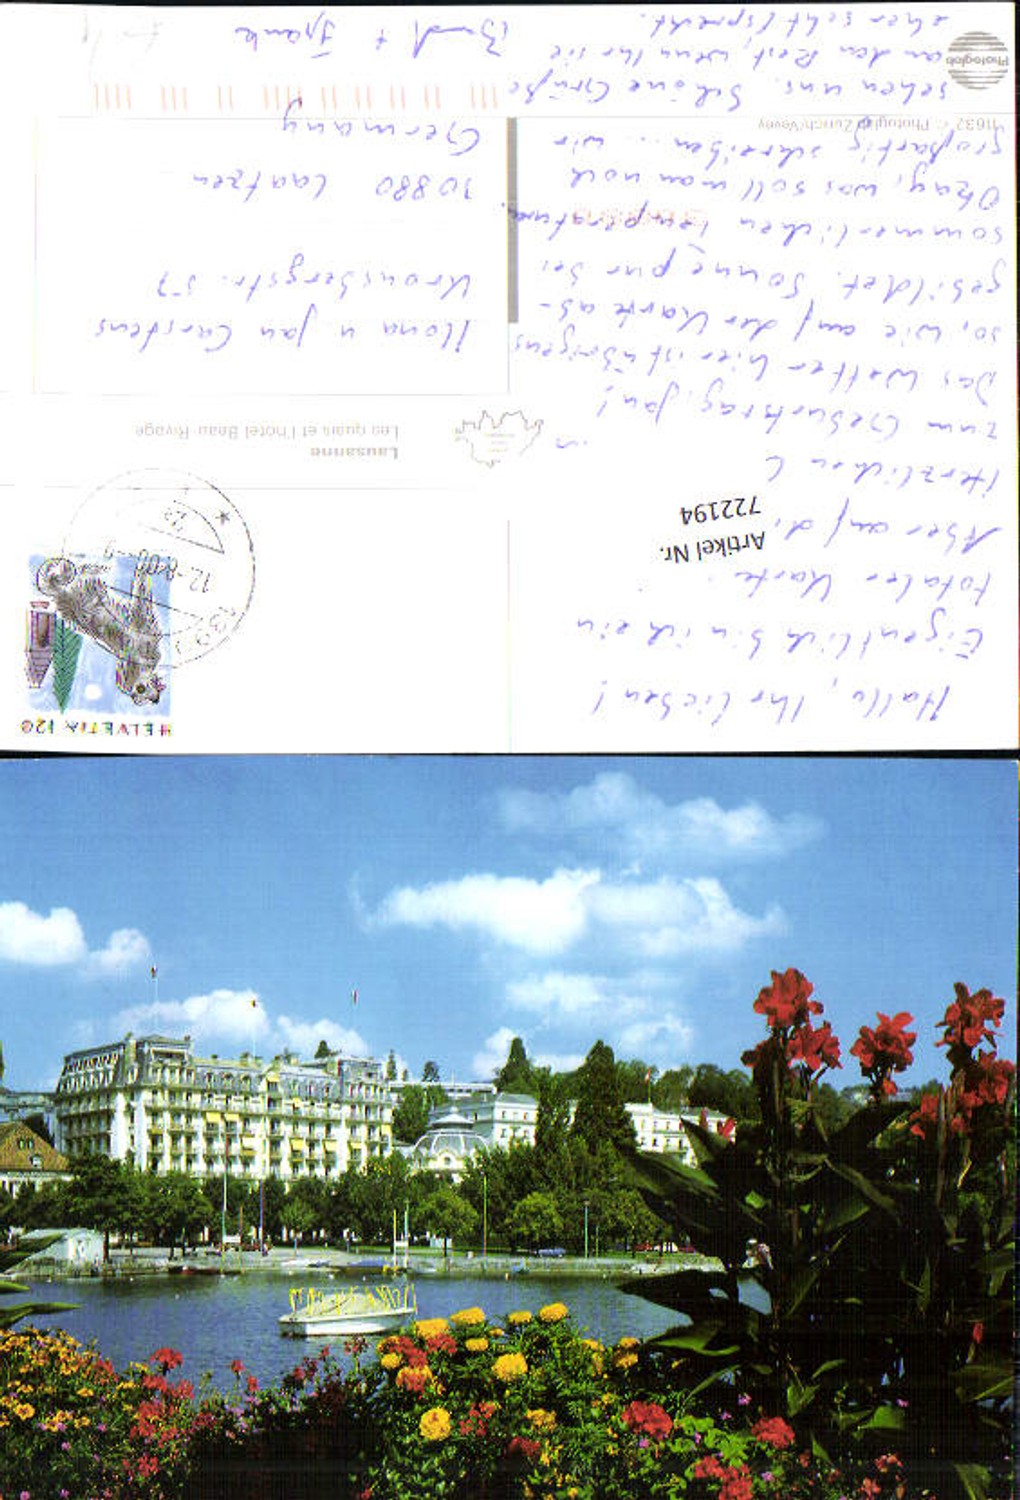 Hallo, Ihr Lieben!
Eigentlich bin ich ein
totaler Karte
Aber auf di
Herzlichen
zum Geburtstag, Jan!
Das Wetter hier ist übrigens
so, wie auf der Karte ab-
gebildet. Sonne pur bei
sommerlichen Temperaturen.
Okay, was soll man noch
großartig schreiben... wir
sehen uns. Schöne Grüße
an den Rest, wenn Ihr sie
eher seht / sprecht.
Bernd + Frank
Artikel Nr.
722194
HELVETIA 120
12-8.00-9
Lausanne
Les quais et l'hôtel Beau-Rivage
Ilona u. Jan Carstens
Kronsbergstr. 57
30880 Laatzen
Germany
11632 © Photoglob Zürich/Vevey
Photoglob